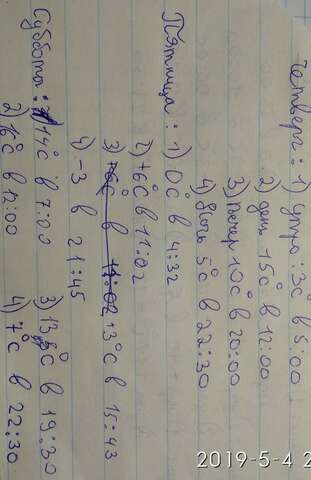 Четверг: 1) утро: 3°C в 5:00
2) день 15°C в 12:00
3) вечер 10°C в 20:00
4) Ночь 5°C в 22:30
Пятница: 1) 0°C в 4:32
2) +6°C в 11:02
3) +6°C в 11:02 13°C в 15:43
4) -3 в 21:45
Суббота: 1) 14°C в 7:00 3) 13,5°C в 19:30
2) 16°C в 12:00 4) 7°C в 22:30
2019-5-4 2